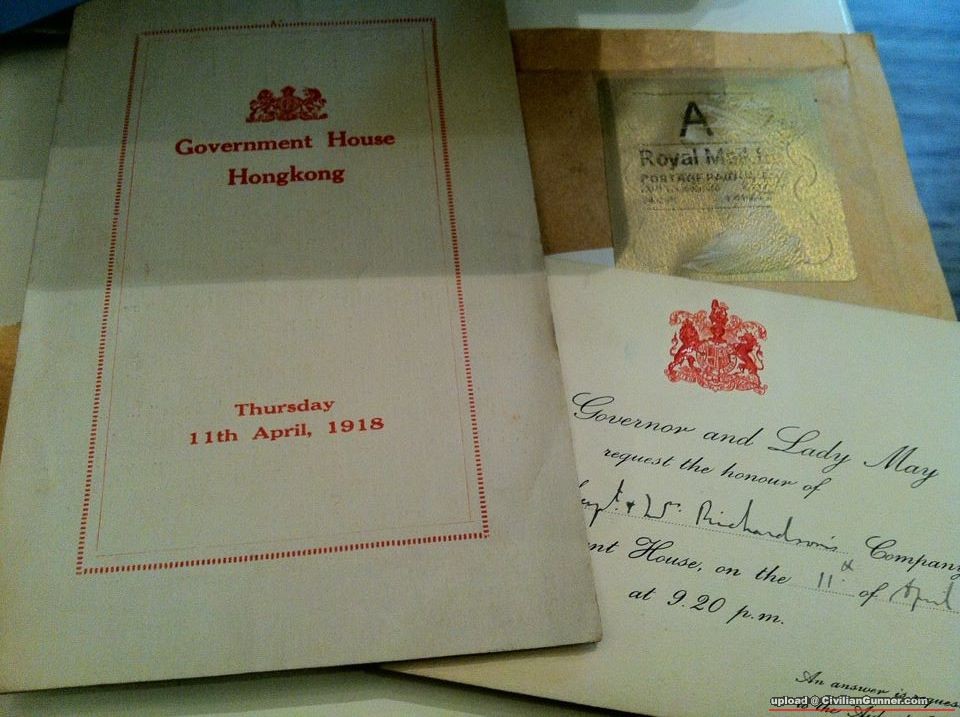 Government House
Hongkong
Thursday
11th April, 1918
A
Royal Mail
POSTAGE PAID
Governor and Lady May
request the honour of
Richardson's Company
House, on the 11th of April
at 9.20 p.m.
An answer is
to the
upload @ CivilianGunner.com